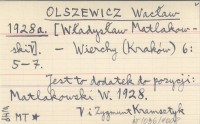 OLSZEWICZ Wacław
1928a. [Władysław Matlakow-
ski]. – Wierchy (Kraków) 6:
5–7.
Jest to dodatek do pozycji:
Matlakowski W. 1928.
MT * V i Zygmunt Kramsztyk